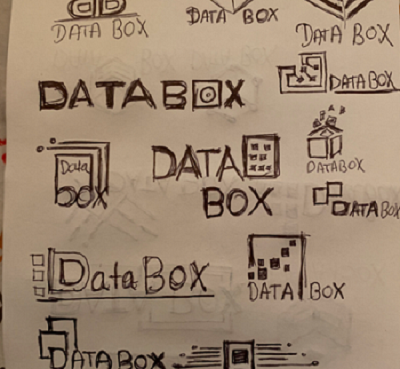 DATA BOX
DATA BOX
DATA BOX
DATABOX
DATABOX
Data
BOX
DATA
BOX
DATABOX
DATABOX
Data BOX
DATA BOX
DATA BOX